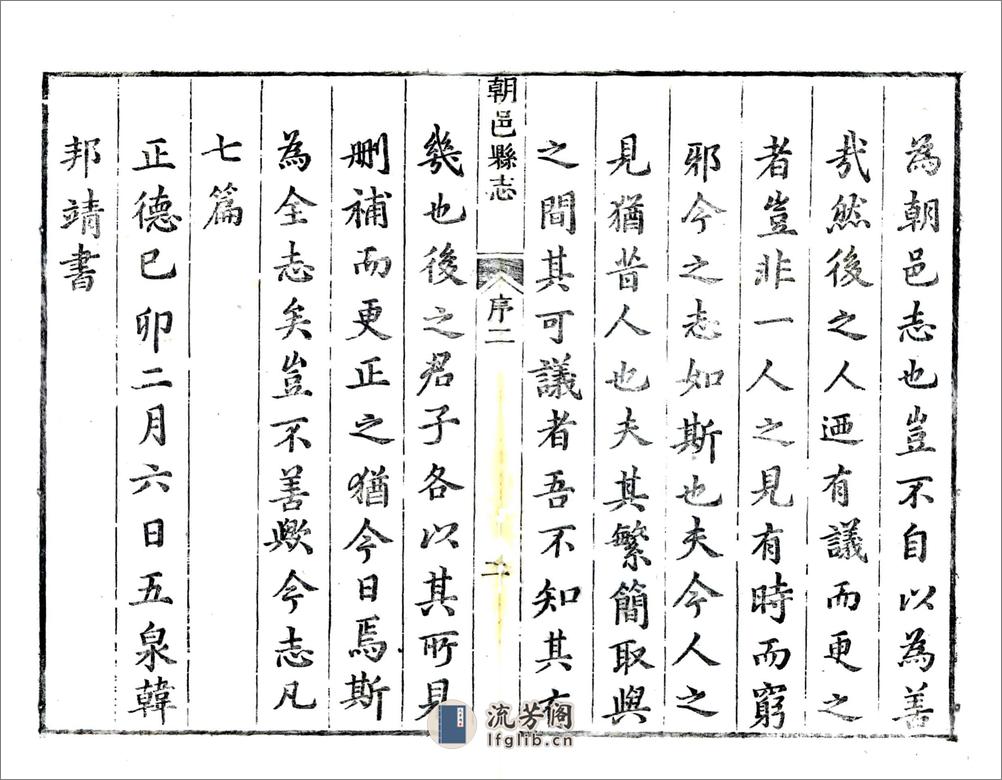 為朝邑志也豈不自以為善
哉然後之人迺有議而更之
者豈非一人之見有時而窮
邪今之志如斯也夫今人之
見猶昔人也夫其繁簡取與
之間其可議者吾不知其有
朝邑縣志
序二
二
幾也後之君子各以其所見
刪補而更正之猶今日焉斯
為全志矣豈不善歟今志凡
七篇
正德己卯二月六日五泉韓
邦靖書
流芳阁
lfglib.cn